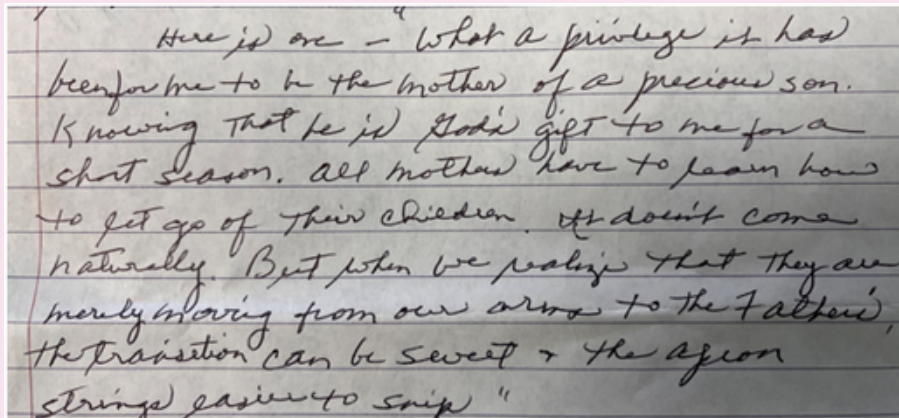 Here is one - "What a privilege it has
been for me to be the mother of a precious son.
Knowing that he is God's gift to me for a
short season. All mothers have to learn how
to let go of their children. It doesn't come
naturally. But when we realize that they are
merely moving from our arms to the Father's,
the transition can be sweet & the apron
strings easier to snip"